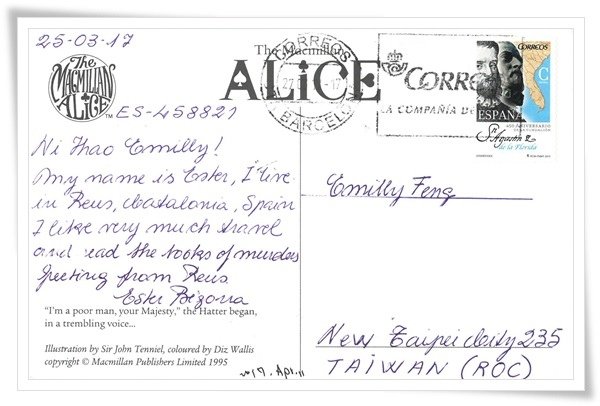 25-03-17
The
MACMILLAN
ALICE
TM
ES-458821
The Macmillan
ALICE
CORREOS
BARCEL
CORREOS
LA COMPAÑÍA DE
CORREOS
ESPAÑA
450 ANIVERSARIO
Sn Agustín
de la Florida
Ni Hao Emilly!
My name is Ester, I live
in Reus, Catalonia, Spain
I like very much travel
and read the books of murders
Greeting from Reus
Ester Bizorra
Emilly Feng
New Taipei City 235
TAIWAN (ROC)
"I'm a poor man, your Majesty," the Hatter began,
in a trembling voice...
Illustration by Sir John Tenniel, coloured by Diz Wallis
copyright © Macmillan Publishers Limited 1995
2017. Apr. 11